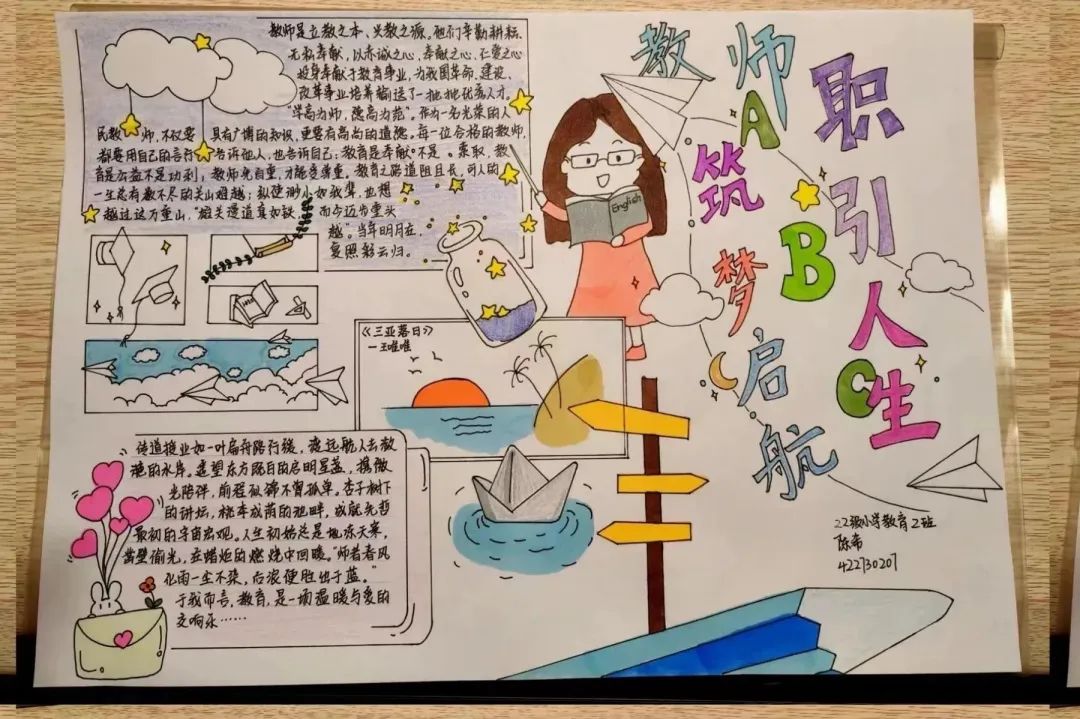 教师职引人生
筑梦启航
A
B
C
教师是立教之本、兴教之源。他们辛勤耕耘、
无私奉献，以赤诚之心，奉献之心，仁爱之心
投身奉献于教育事业，为我国革命、建设、
改革事业培养输送了一批批优秀人才。
“学高为师，德高为范”。作为一名光荣的人
民教师，不仅要具有广博的知识，更要有高尚的道德。每一位合格的教师，
都要用自己的言行告诉他人，也告诉自己：教育是奉献不是索取，教
育是公益不是功利；教师先自重，才能受尊重。教育之路道阻且长，可人的
一生总有数不尽的关山迢越；纵使渺小如我辈，也想
越过这万重山，“雄关漫道真如铁 而今迈步重头
越”。当年明月在，
复照彩云归。
English
《三亚落日》
—王唯唯
传道授业如一叶扁舟踏行缓，渡远航人去教
港的水岸。遥望东方路目的启明星盏，携微
光陪伴，前程似锦不曾孤单。杏子树下
的讲坛，桃李成荫的池畔，成就先哲
最初的宇宙宏观。人生初始总是地冻天寒，
凿壁偷光，在蜡炬的燃烧中回暖。“师者春风
化雨一尘不染，后浪便胜出于蓝。”
于我而言，教育，是一场温暖与爱的
交响乐……
22级小学教育2班
陈希
422730207